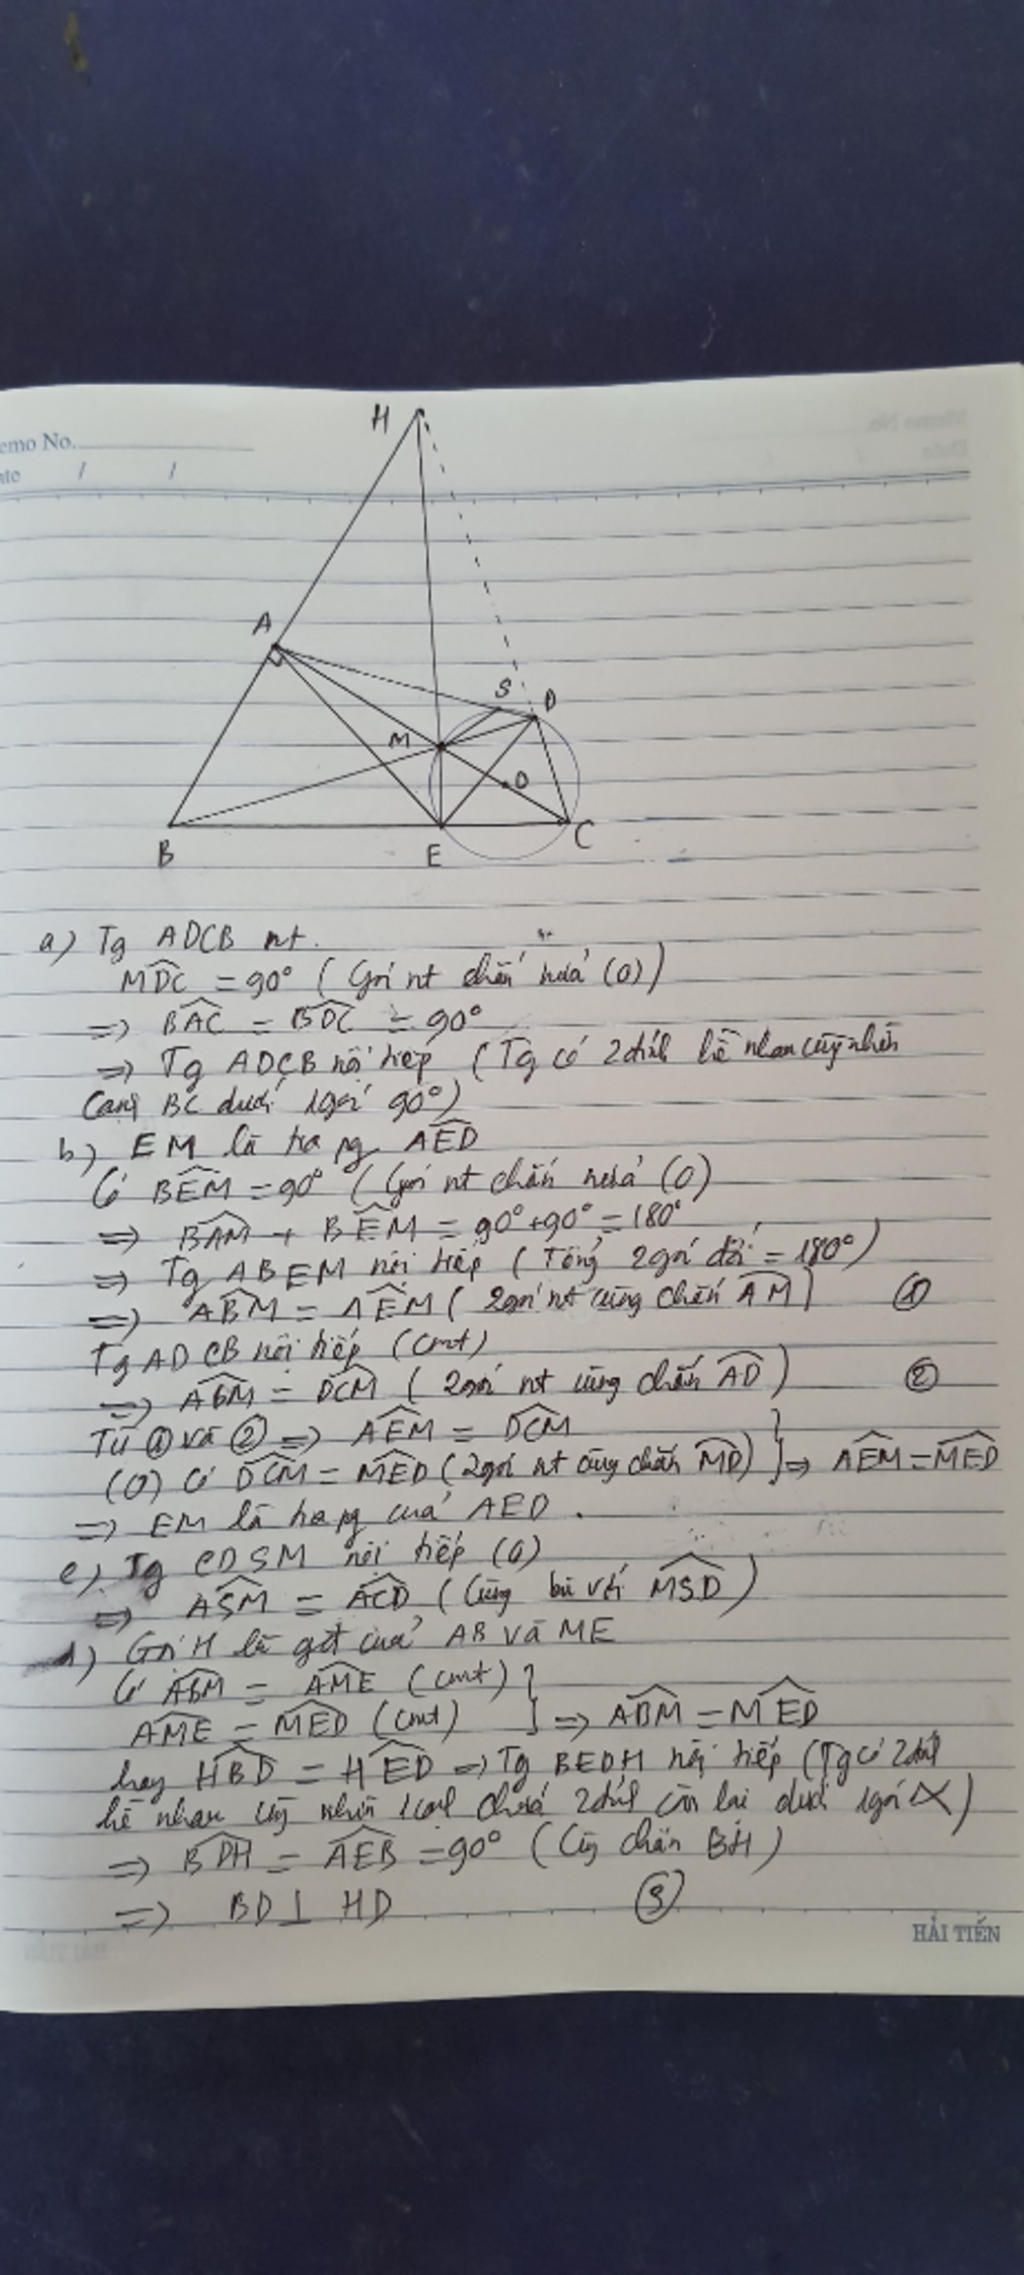 emo No.
ate / /
H
A
S
D
M
O
B
E
C
a) Tg ADCB nt.
MDC = 90° (Góc nt chắn nửa (O))
=> BAC = BDC = 90°
=> Tg ADCB nội tiếp (Tg có 2 đỉnh kề nhau cùng nhìn
cạnh BC dưới 1 góc 90°)
b) EM là tia pg AED
Có BEM = 90° (Góc nt chắn nửa (O)
=> BAM + BEM = 90° + 90° = 180°
=> Tg ABEM nội tiếp (Tổng 2 góc đối = 180°)
=> ABM = AEM (2 góc nt cùng chắn AM) ①
Tg ADCB nội tiếp (cmt)
=> ABM = DCM (2 góc nt cùng chắn AD) ②
Từ ① và ② => AEM = DCM
(O) có DCM = MED (2 góc nt cùng chắn MD) } => AEM = MED
=> EM là tia pg của AED.
c) Tg CDSM nội tiếp (O)
=> ASM = ACD (Cùng bù với MSD)
d) Gọi H là gđ của AB và ME
Có ABM = AME (cmt) }
AME = MED (cmt) } => ABM = MED
hay HBD = HED => Tg BEDH nội tiếp (Tg có 2 đỉnh
kề nhau cùng nhìn 1 cạnh chứa 2 đỉnh còn lại dưới 1 góc α)
=> BDH = AEB = 90° (Cùng chắn BH)
=> BD ⊥ HD ③
HẢI TIẾN